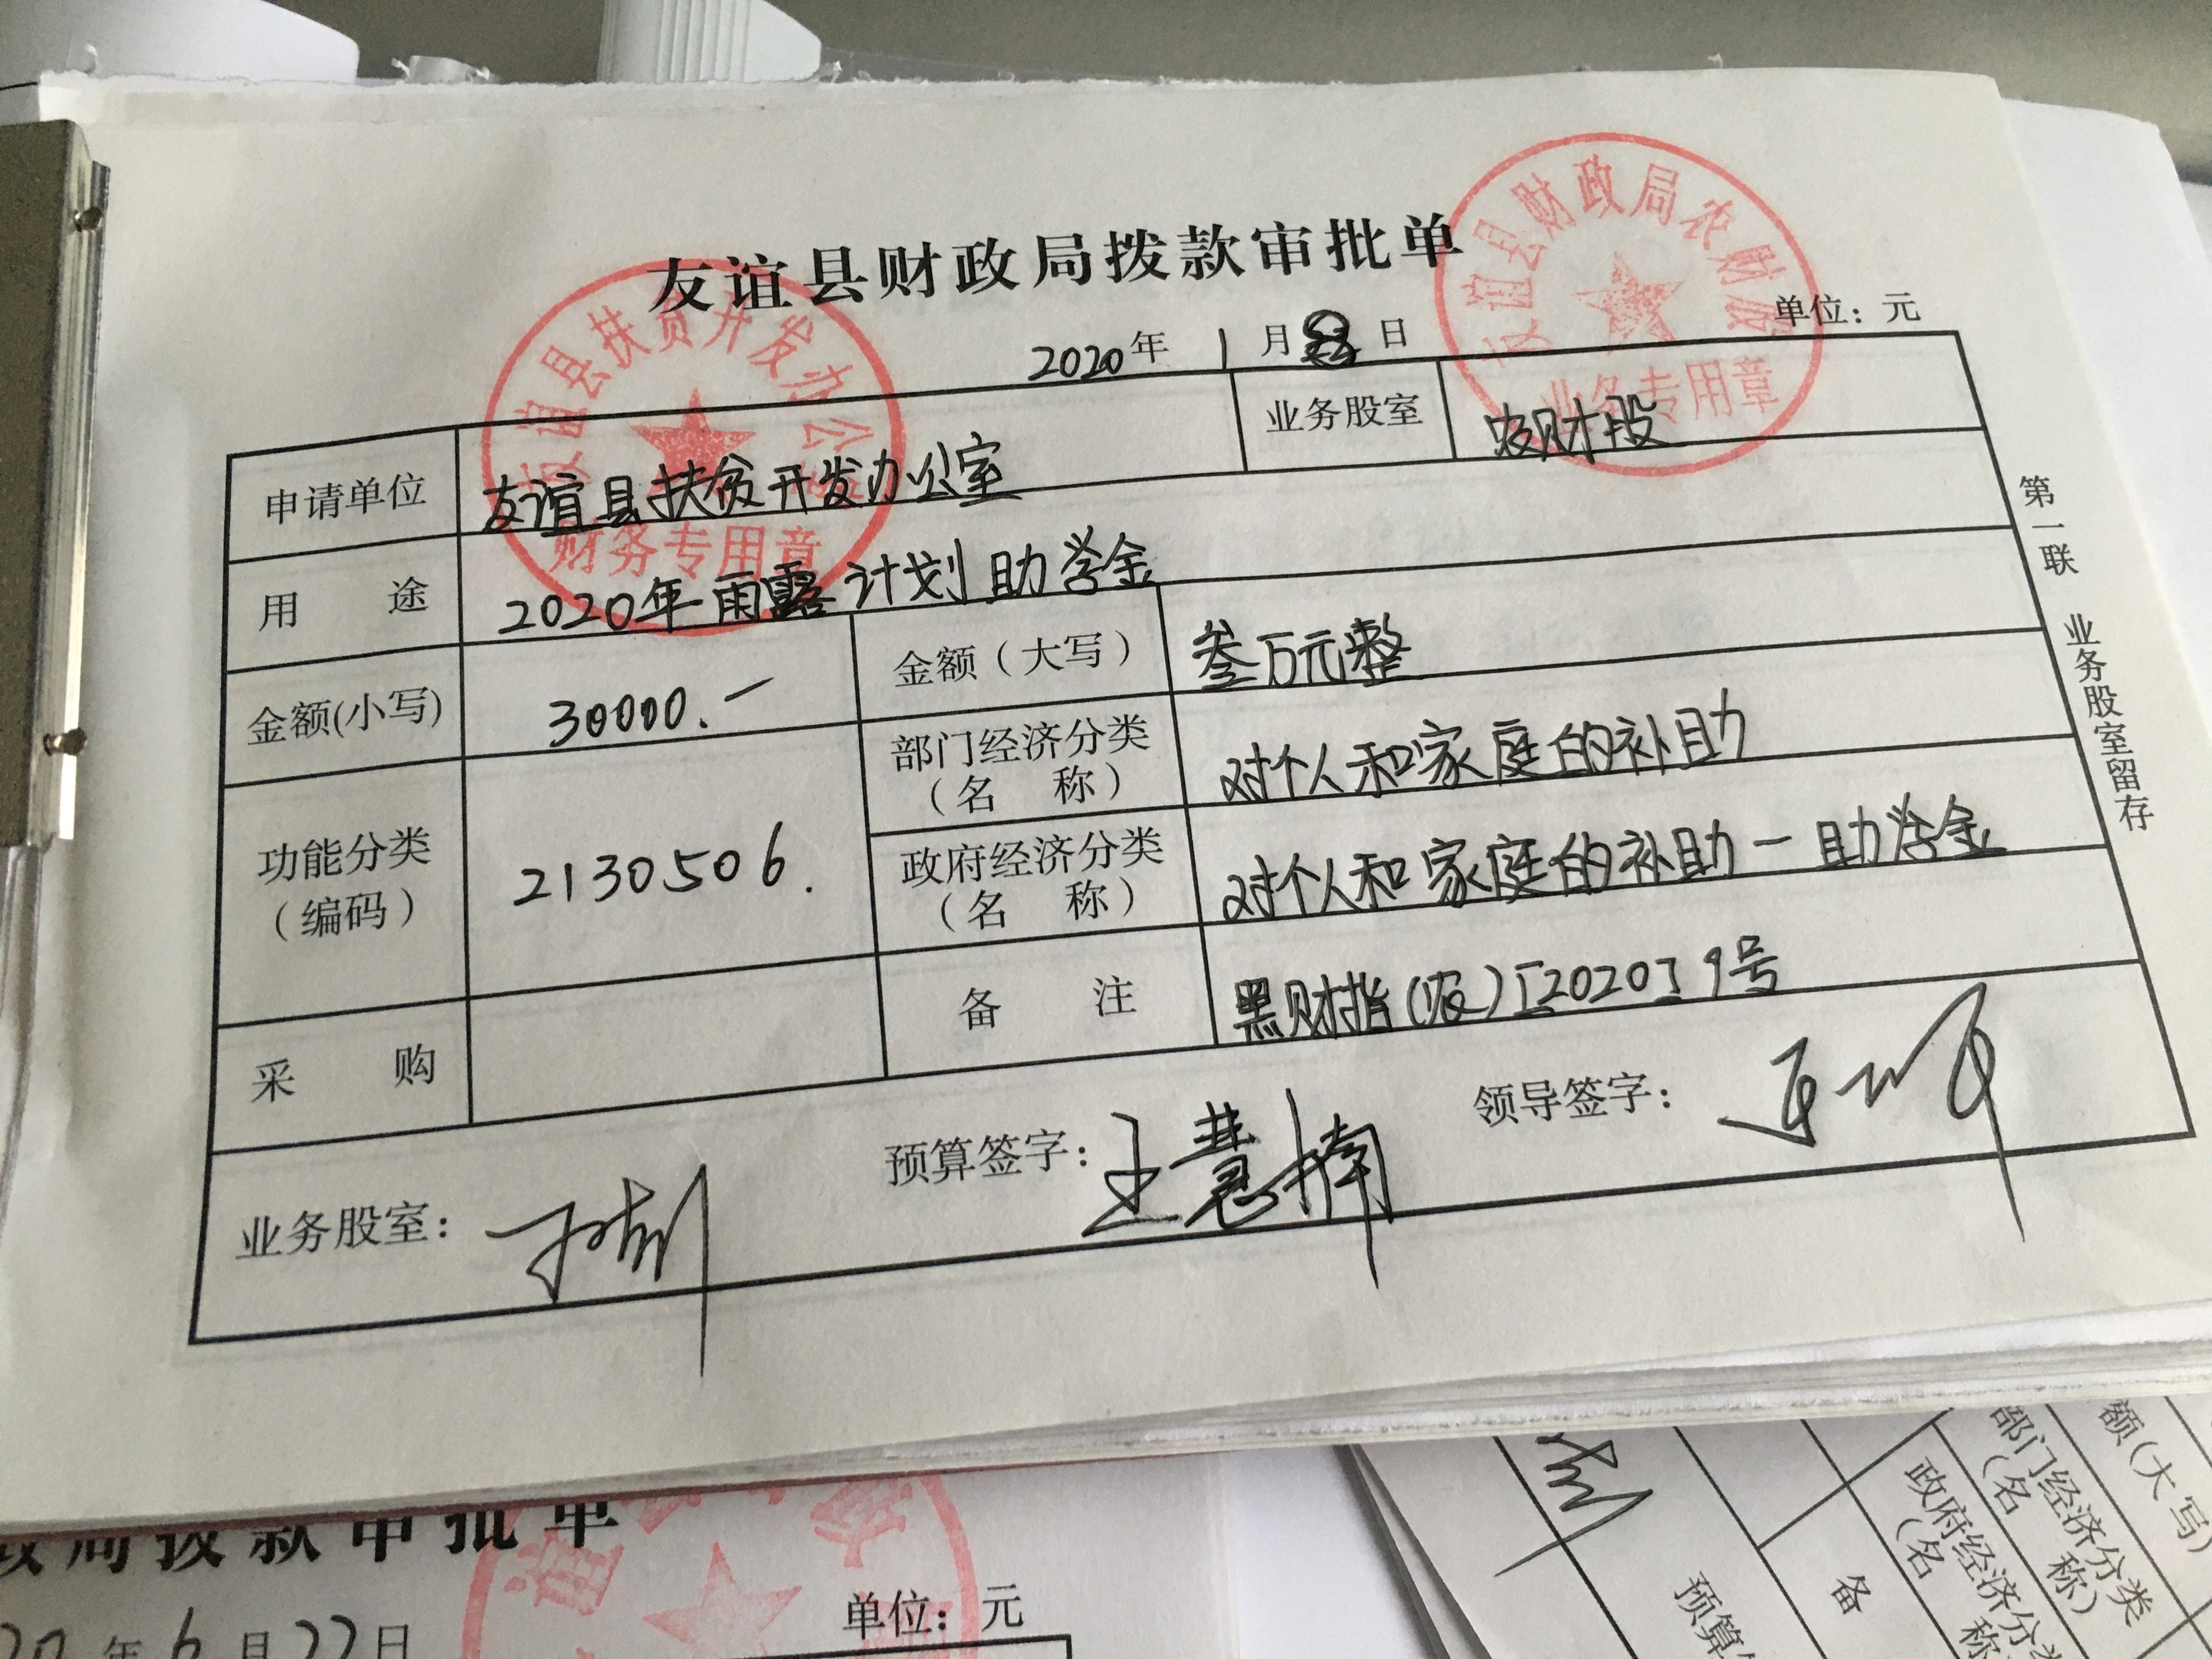 友谊县财政局拨款审批单
2020年 1月8日 单位：元
申请单位 友谊县扶贫开发办公室 业务股室 农财股
用 途 2020年雨露计划助学金
金额(小写) 30000.— 金额（大写） 叁万元整
功能分类（编码） 2130506. 部门经济分类（名 称） 对个人和家庭的补助
政府经济分类（名 称） 对个人和家庭的补助—助学金
采 购 备 注 黑财指(农)[2020]9号
业务股室： 预算签字：王慧楠 领导签字：
第一联 业务股室留存
友谊县扶贫开发办公室
财务专用章
友谊县财政局农财股
业务专用章
政局拨款审批单
单位：元
20年6月22日
谊县
额(大写)
部门经济分类
（名 称）
政府经济分类
（名 称
备
预算